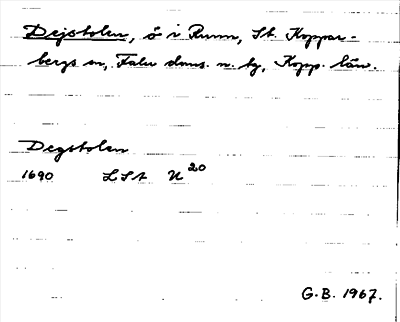 Dejstolen, ö i Runn, St. Koppar-
bergs sn, Falu doms. n. tg, Kopp. län.
Degstolen
1690 LSA U 20
G.B. 1967.